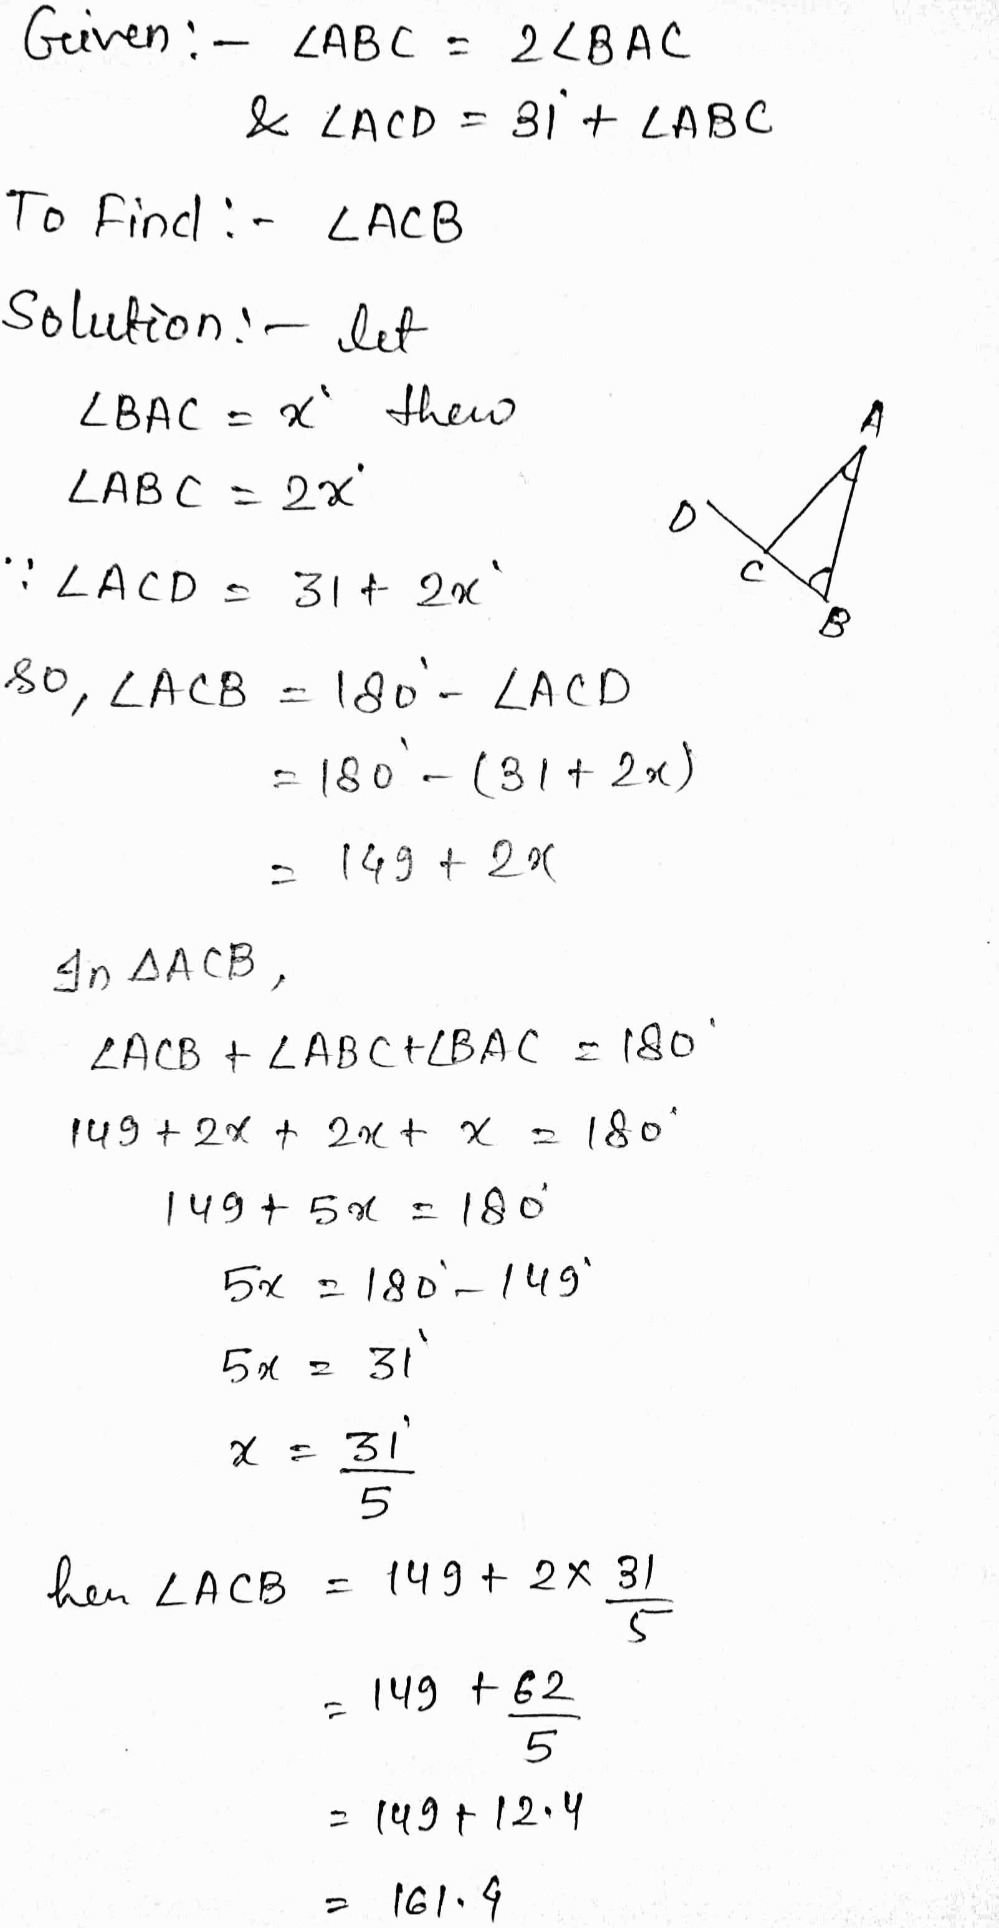 Given :- ∠ABC = 2∠BAC
& ∠ACD = 31° + ∠ABC
To Find :- ∠ACB
Solution :- let
∠BAC = x° then
∠ABC = 2x°
∵ ∠ACD = 31 + 2x°
so, ∠ACB = 180° - ∠ACD
= 180° - (31 + 2x)
= 149 + 2x
A
D
C
B
In ΔACB,
∠ACB + ∠ABC + ∠BAC = 180°
149 + 2x + 2x + x = 180°
149 + 5x = 180°
5x = 180° - 149°
5x = 31°
x = 31°/5
hen ∠ACB = 149 + 2 × 31/5
= 149 + 62/5
= 149 + 12.4
= 161.4